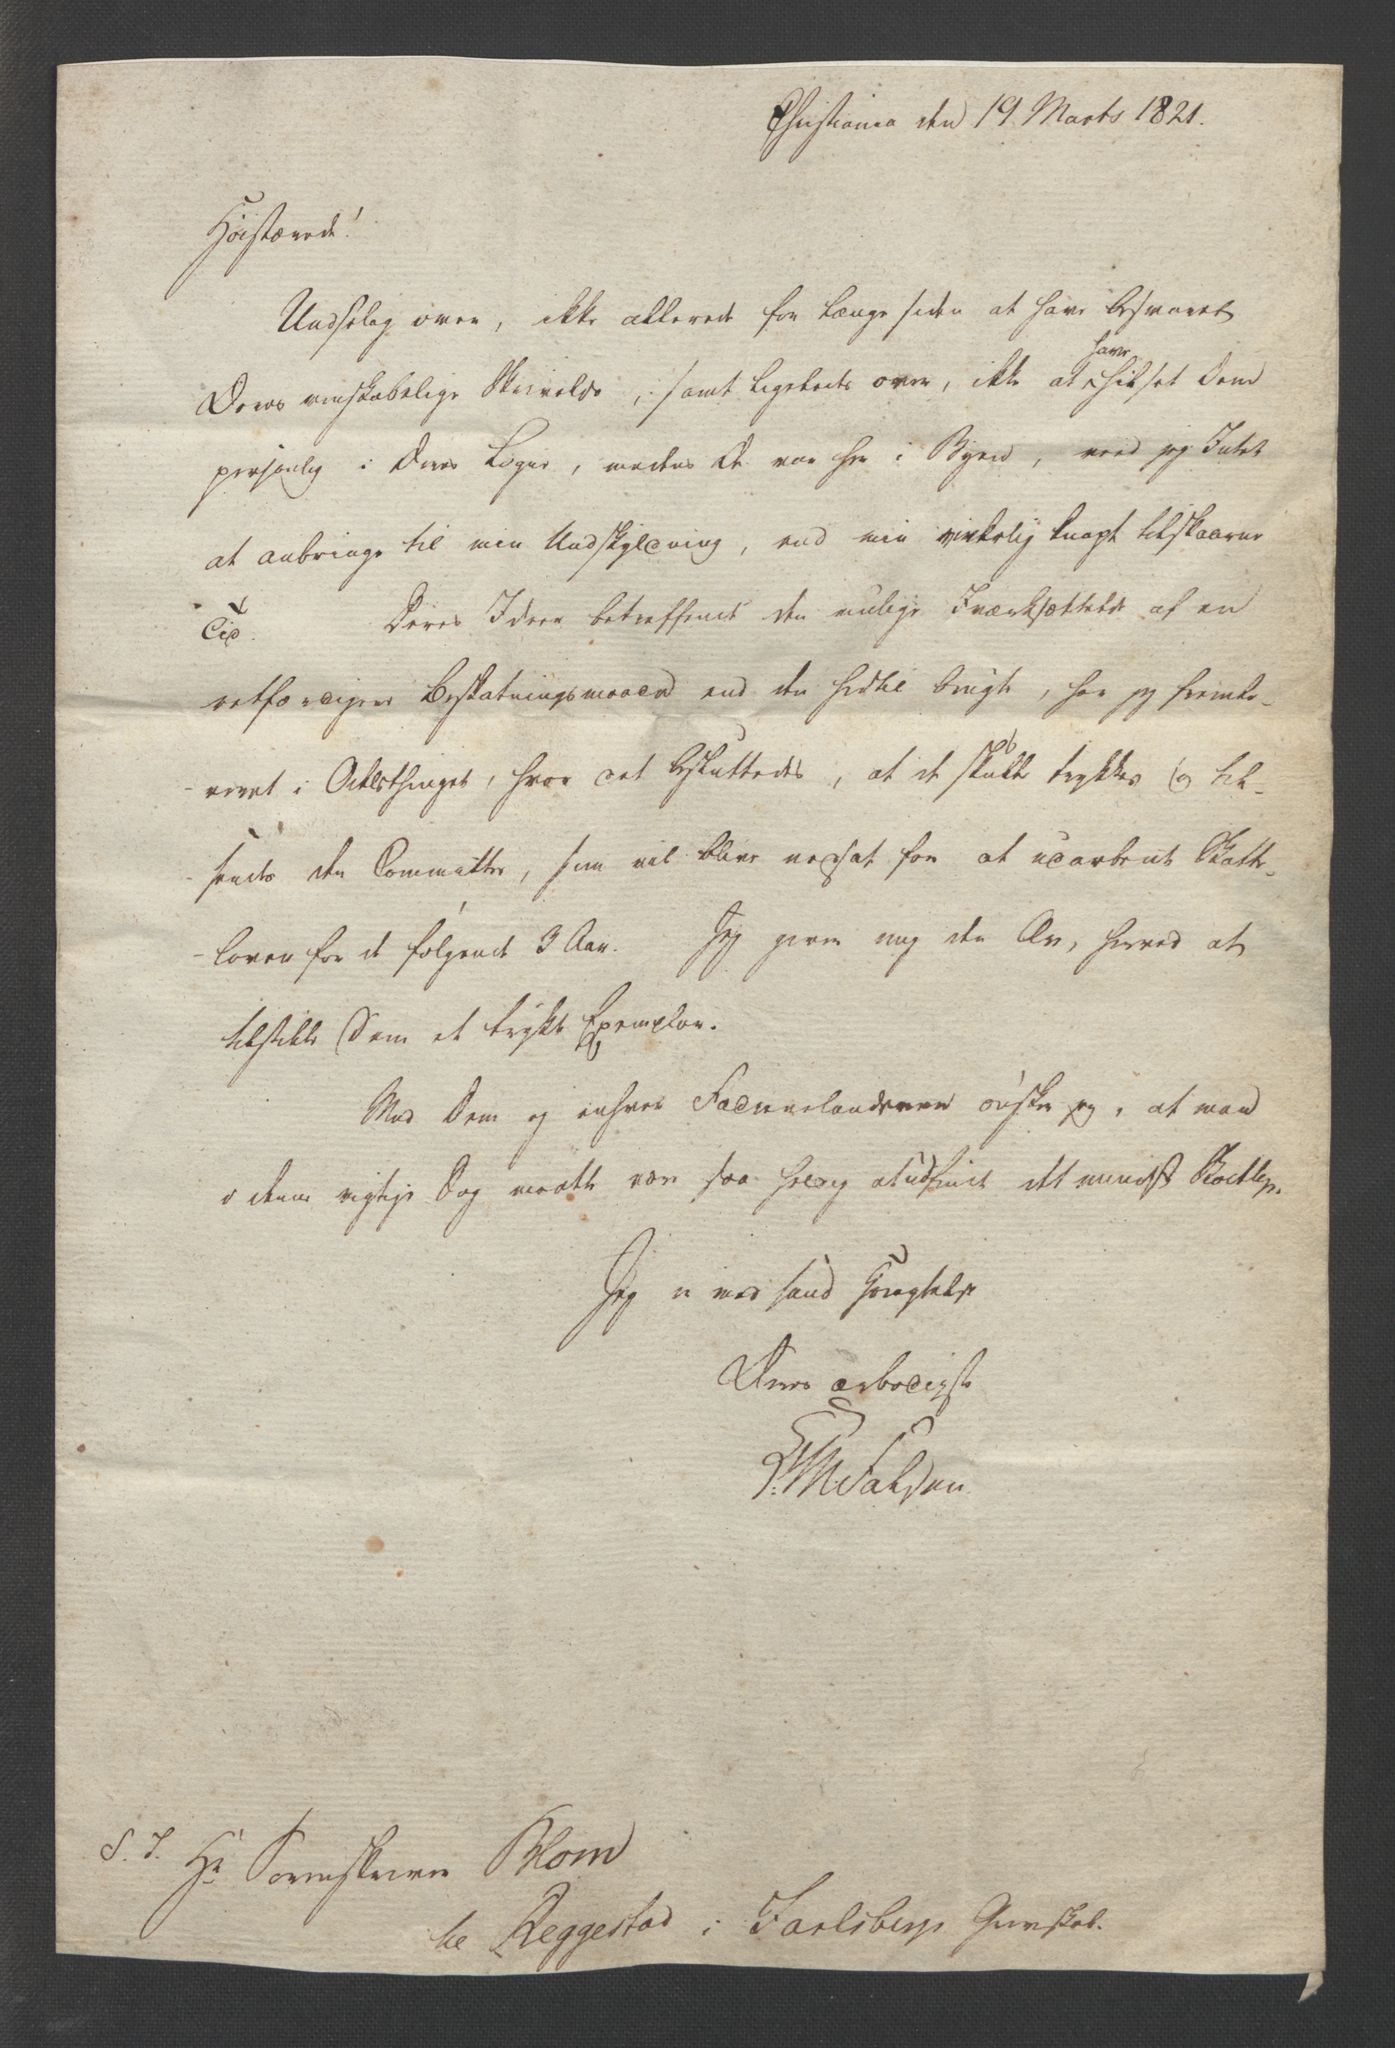 Christiania den 19 Marts 1821.
Høistærede!
Undselig over, ikke allerede for længe siden at have besvaret
Deres venskabelige Skrivelse, samt ligeledes over, ikke at have hilset Dem
personlig i Deres Logie, medens De var her i Byen, veed jeg Intet
at anbringe til min Undskyldning, end min virkelig knapt tilskaarne
Tid. Deres Ideer betreffende den mulige Iværksættelse af en
retfærdigere Beskatningsmaade end den hidtil brugte, har jeg fremle-
veret i Odelsthinget, hvor det besluttedes, at de skulle trykkes og til-
sendes den Committee, som vil blive nedsat for at udarbeide Skatte-
loven for de følgende 3 Aar. Jeg giver mig den Ære, herved at
tilstille Dem et trykt Exemplar.
Med Dem og enhver Fædrenelandsven ønsker jeg, at man
i denne vigtige Sag maatte være saa heldig at udfinde det mindst Skadelige.
Jeg er med sand Høiagtelse
Deres ærbødigste
CMFalsen
S. T. Hr Sorenskriver Blom
til Reggestad i Jarlsbergs Grevskab.